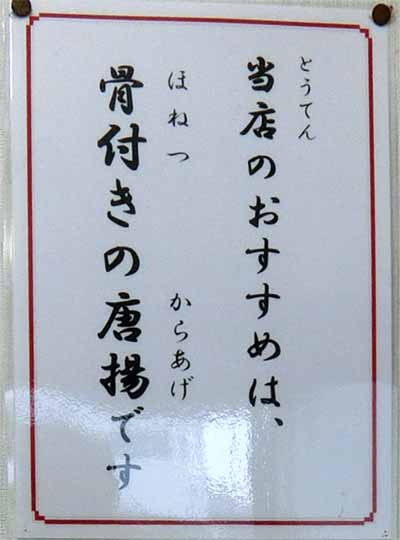 とうてん
当店のおすすめは、
ほねつ からあげ
骨付きの唐揚です